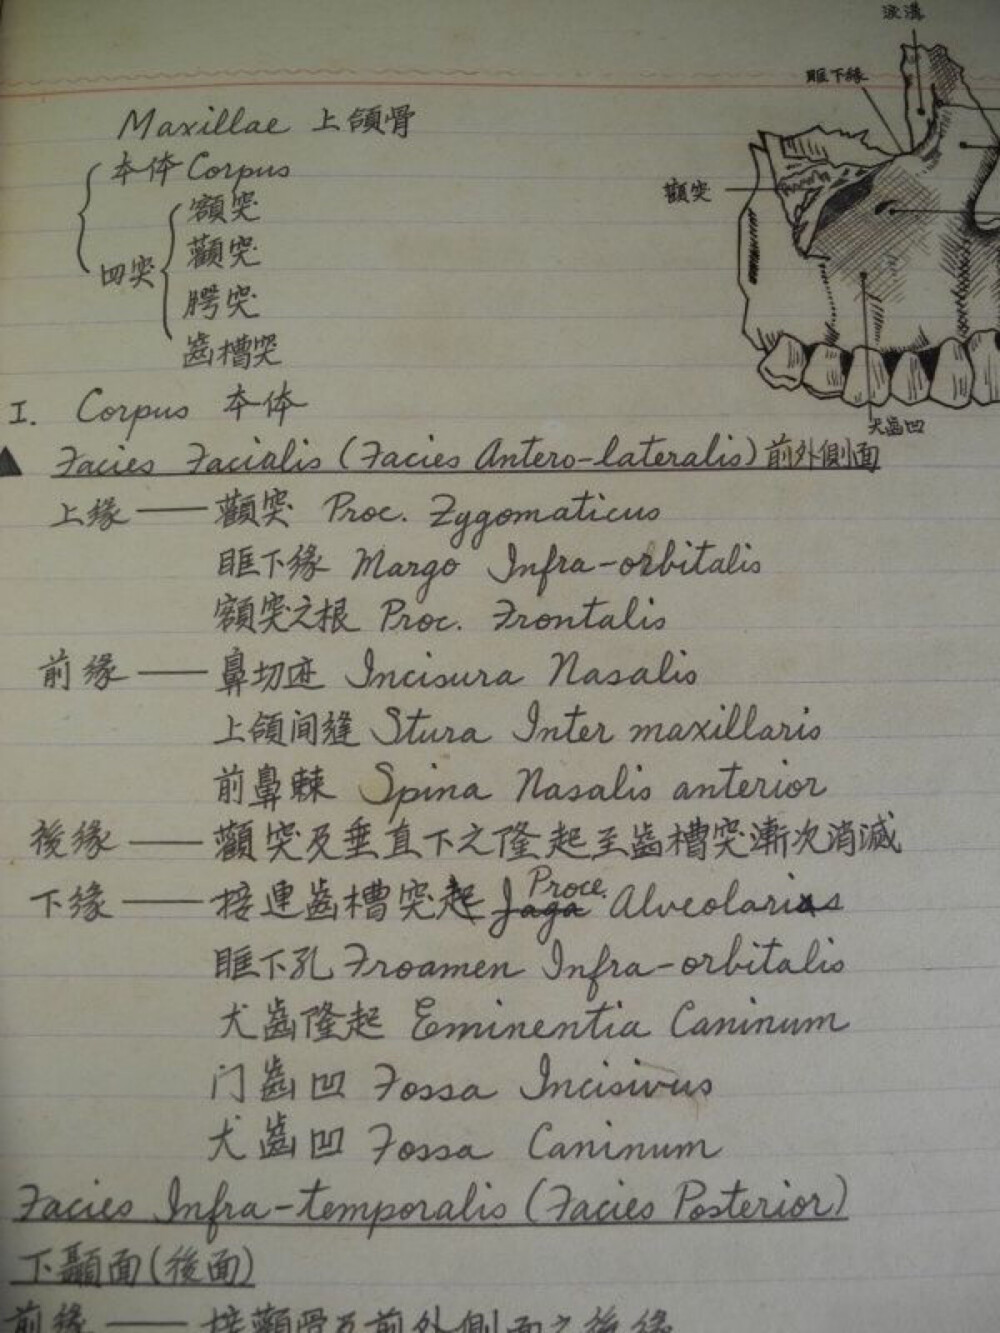 淚溝
眶下緣
Maxillae 上頜骨
本体 Corpus
顴突
額突
顴突
四突
腭突
齒槽突
I. Corpus 本体
犬齒凹
▲ Facies Facialis (Facies Antero-lateralis) 前外側面
上緣 —— 顴突 Proc. Zygomaticus
眶下緣 Margo Infra-orbitalis
額突之根 Proc. Frontalis
前緣 —— 鼻切迹 Incisura Nasalis
上頜间縫 Stura Inter maxillaris
前鼻棘 Spina Nasalis anterior
後緣 —— 顴突及垂直下之隆起至齒槽突漸次消滅
下緣 —— 接連齒槽突起 Proce. Alveolaris
眶下孔 Froamen Infra-orbitalis
犬齒隆起 Eminentia Caninum
门齒凹 Fossa Incisivus
犬齒凹 Fossa Caninum
Facies Infra-temporalis (Facies Posterior)
下顳面(後面)
前緣 —— 接顴骨及前外側面之後緣